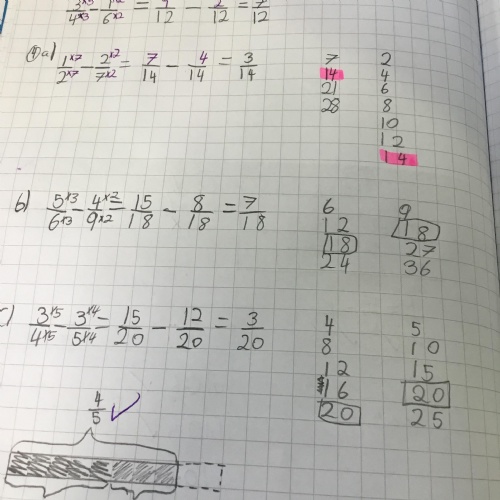 3×3/4×3 - 1×2/6×2 = 9/12 - 2/12 = 7/12
4a) 1×7/2×7 - 2×2/7×2 = 7/14 - 4/14 = 3/14
7 2
14 4
21 6
28 8
10
12
14
b) 5×3/6×3 - 4×2/9×2 = 15/18 - 8/18 = 7/18
6 9
12 18
18 27
24 36
c) 3×5/4×5 - 3×4/5×4 = 15/20 - 12/20 = 3/20
4 5
8 10
12 15
16 20
20 25
4/5 ✓